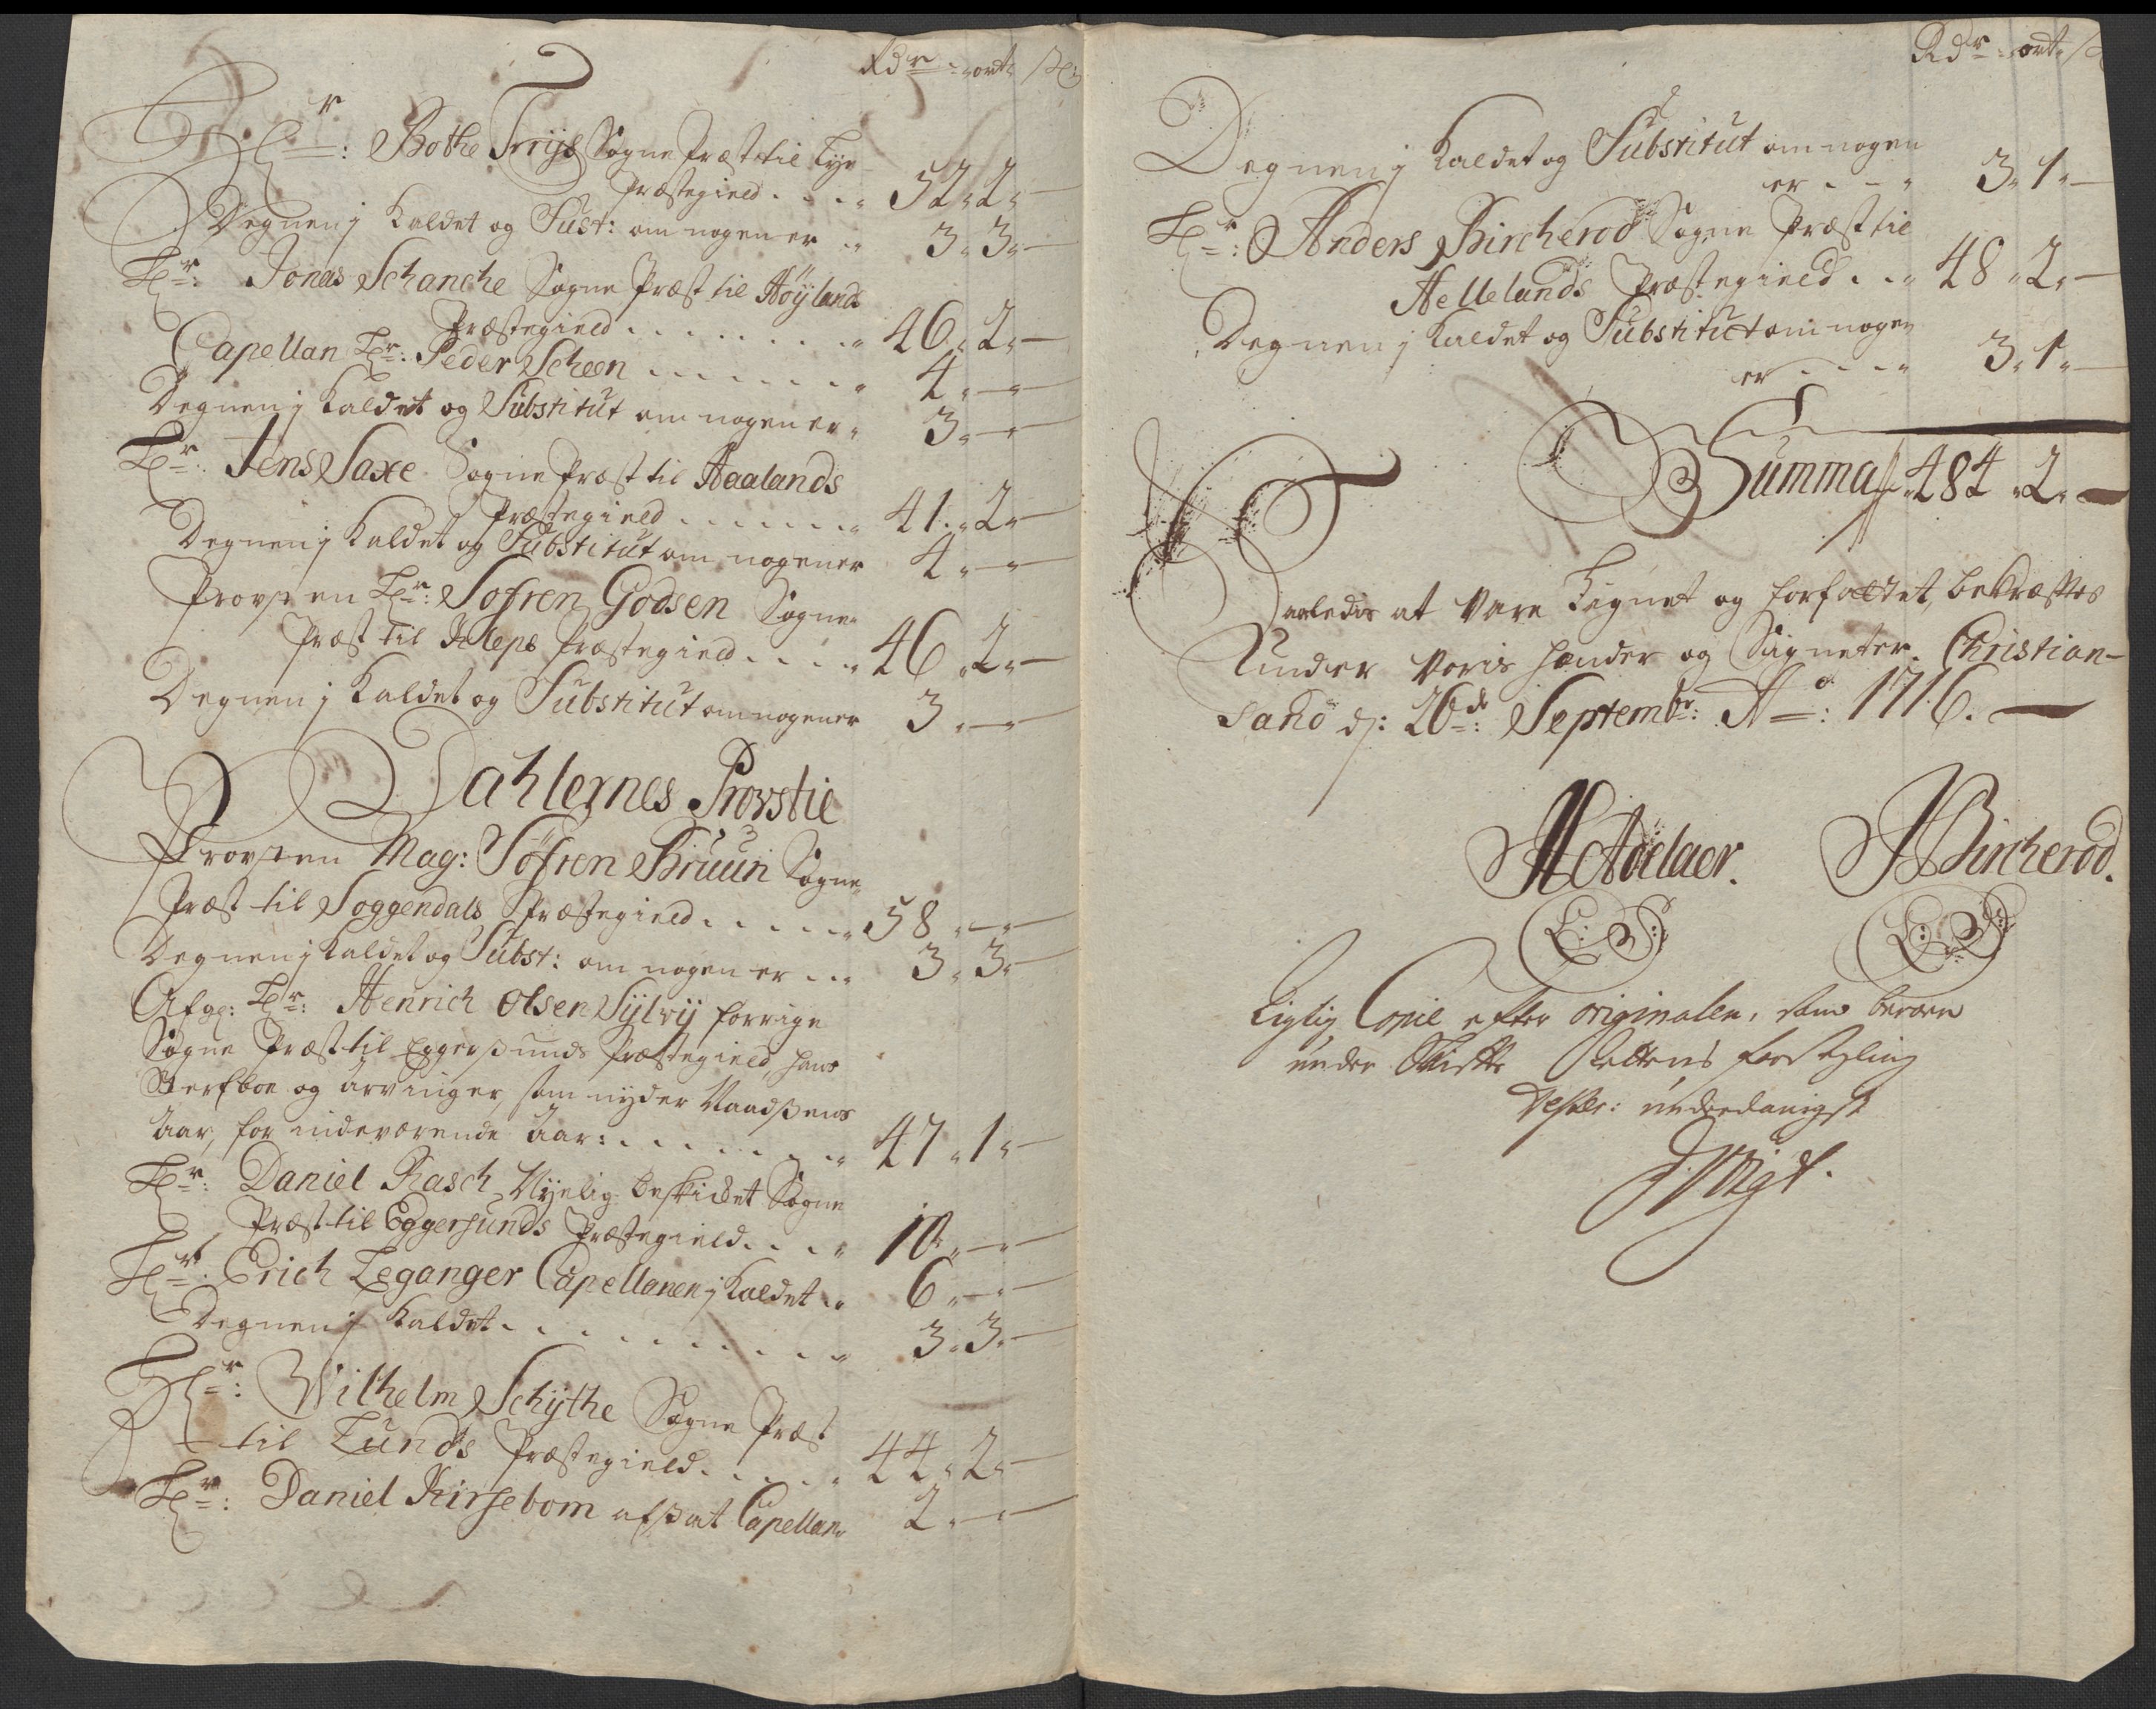 Rdr: ort: sk:
Hr: Bothe Friis Sogne Præst til Lye
Præstegield . . . . 52. 2. —
Degnen j Kaldet og Sust: om nogen er . . 3. 3. —
Hr: Jonas Schanche Sogne Præst til Höÿlands
Præstegield . . . . . . . . . 46. 2. —
Capellan Hr: Peder Scheen . . . . . . . . 4. — —
Degnen j Kaldet og Substitut om nogen er. 3. — —
Hr: Jens Saxe Sogne Præst til Haalands
Præstegield . . . . . . . 41. 2. —
Degnen j Kaldet og Substitut om nogen er 4. — —
Provsten Hr: Sofren Godsen Sogne
Præst til Kleps Præstegield . . . . . 46. 2. —
Degnen j Kaldet og Substitut om nogen er 3. — —
Dahlernes Provstie
Provsten Mag: Söfren Bruun Sogne
Præst til Soggendals Præstegield . . . . . 58. — —
Degnen j Kaldet og Subst: om nogen er . . . 3. 3. —
Afge: Hr: Henrich Olsen Sÿlvÿ forrige
Sogne Præst til Eggersunds Præstegield, hans
Sterfboe og arvinger, som nyder Naadsens
Aar, for indeværende Aar: . . . . . . . . 47. 1. —
Hr: Daniel Rasch Nyelig beskicket Sogne
Præst til Eggersunds Præstegield . . . . 10. — —
Hr: Erich Leganger Capellanen j Kaldet . . 6. — —
Degnen j Kaldet . . . . . . . . . . . 3. 3. —
Hr: Wilhelm Schÿthe Sogne Præst
til Lunds Præstegield . . . . . 44. 2. —
Hr: Daniel Kirsebom afsat Capellan. 2. — —
Rdr: ort: sk
Degnen j Kaldet og Substitut om nogen
er . . . . 3. 1. —
Hr: Anders Bircherod Sogne Præst til
Hellelands Præstegield . . . 48. 2. —
Degnen j Kaldet og Substitut om nogen
er . . . . . 3. 1. —
Summa 484. 2. —
Saaledes at være Lignet og forfattet, bekræftes
Under voris hænder og Signeter. Christian-
sand d: 26de: Septembr: Ao: 1716. —
H Adelaer. J Bircherod.
L: S: L: S:
Rigtig Copie efter originalen, som beroer
under Skifte Rettens forseyling
Tester: underdanigst